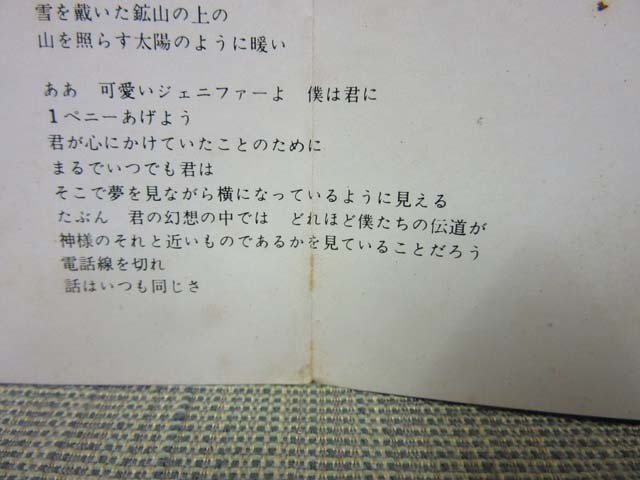 雪を戴いた鉱山の上の
山を照らす太陽のように暖い
ああ　可愛いジェニファーよ　僕は君に
1ペニーあげよう
君が心にかけていたことのために
まるでいつでも君は
そこで夢を見ながら横になっているように見える
たぶん　君の幻想の中では　どれほど僕たちの伝道が
神様のそれと近いものであるかを見ていることだろう
電話線を切れ
話はいつも同じさ